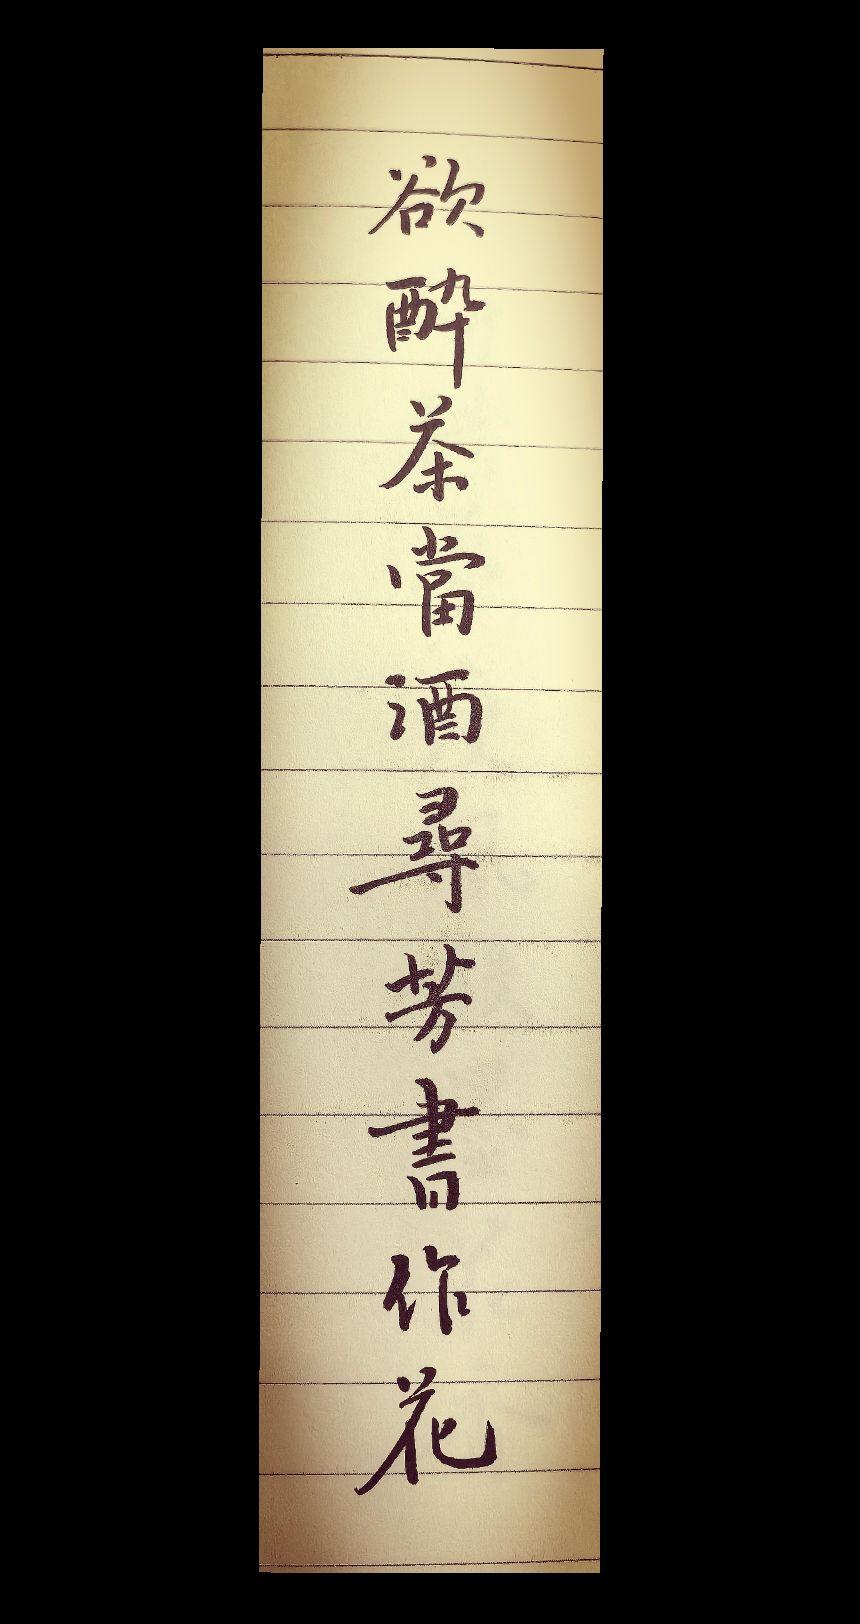 欲醉茶當酒尋芳書作花